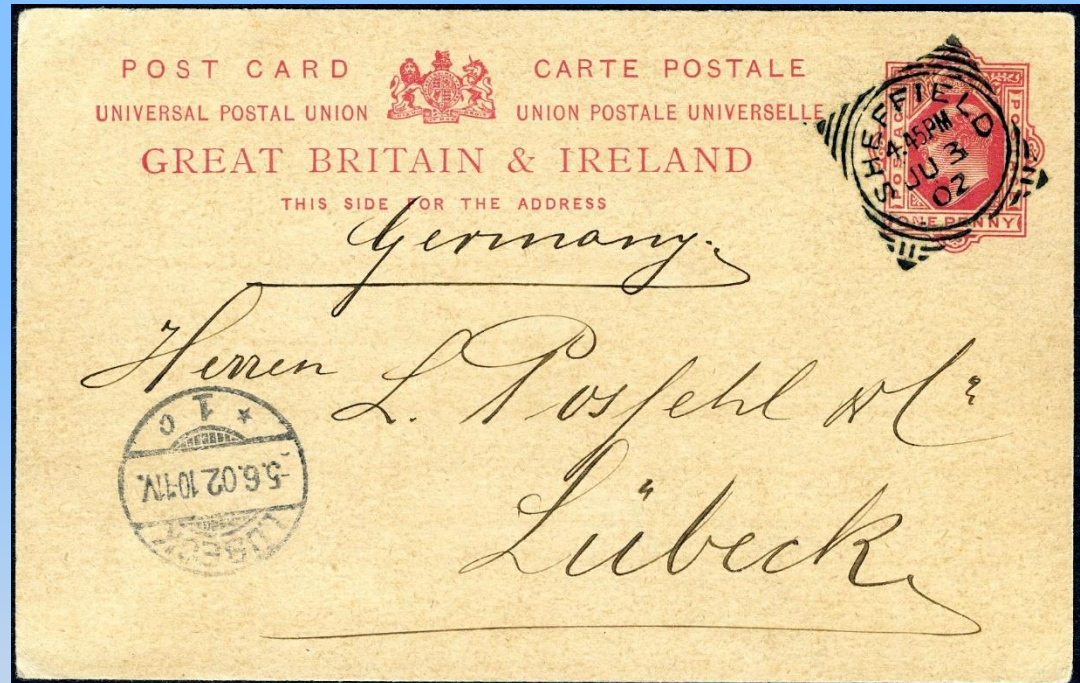 POST CARD CARTE POSTALE
UNIVERSAL POSTAL UNION UNION POSTALE UNIVERSELLE
GREAT BRITAIN & IRELAND
THIS SIDE FOR THE ADDRESS
SHEFFIELD
4.45PM
JU 3
02
11
ONE PENNY
Germany.
Herren L. Possehl & Co
Lübeck
LÜBECK
-5.6.02 10-11V.
* 1 c